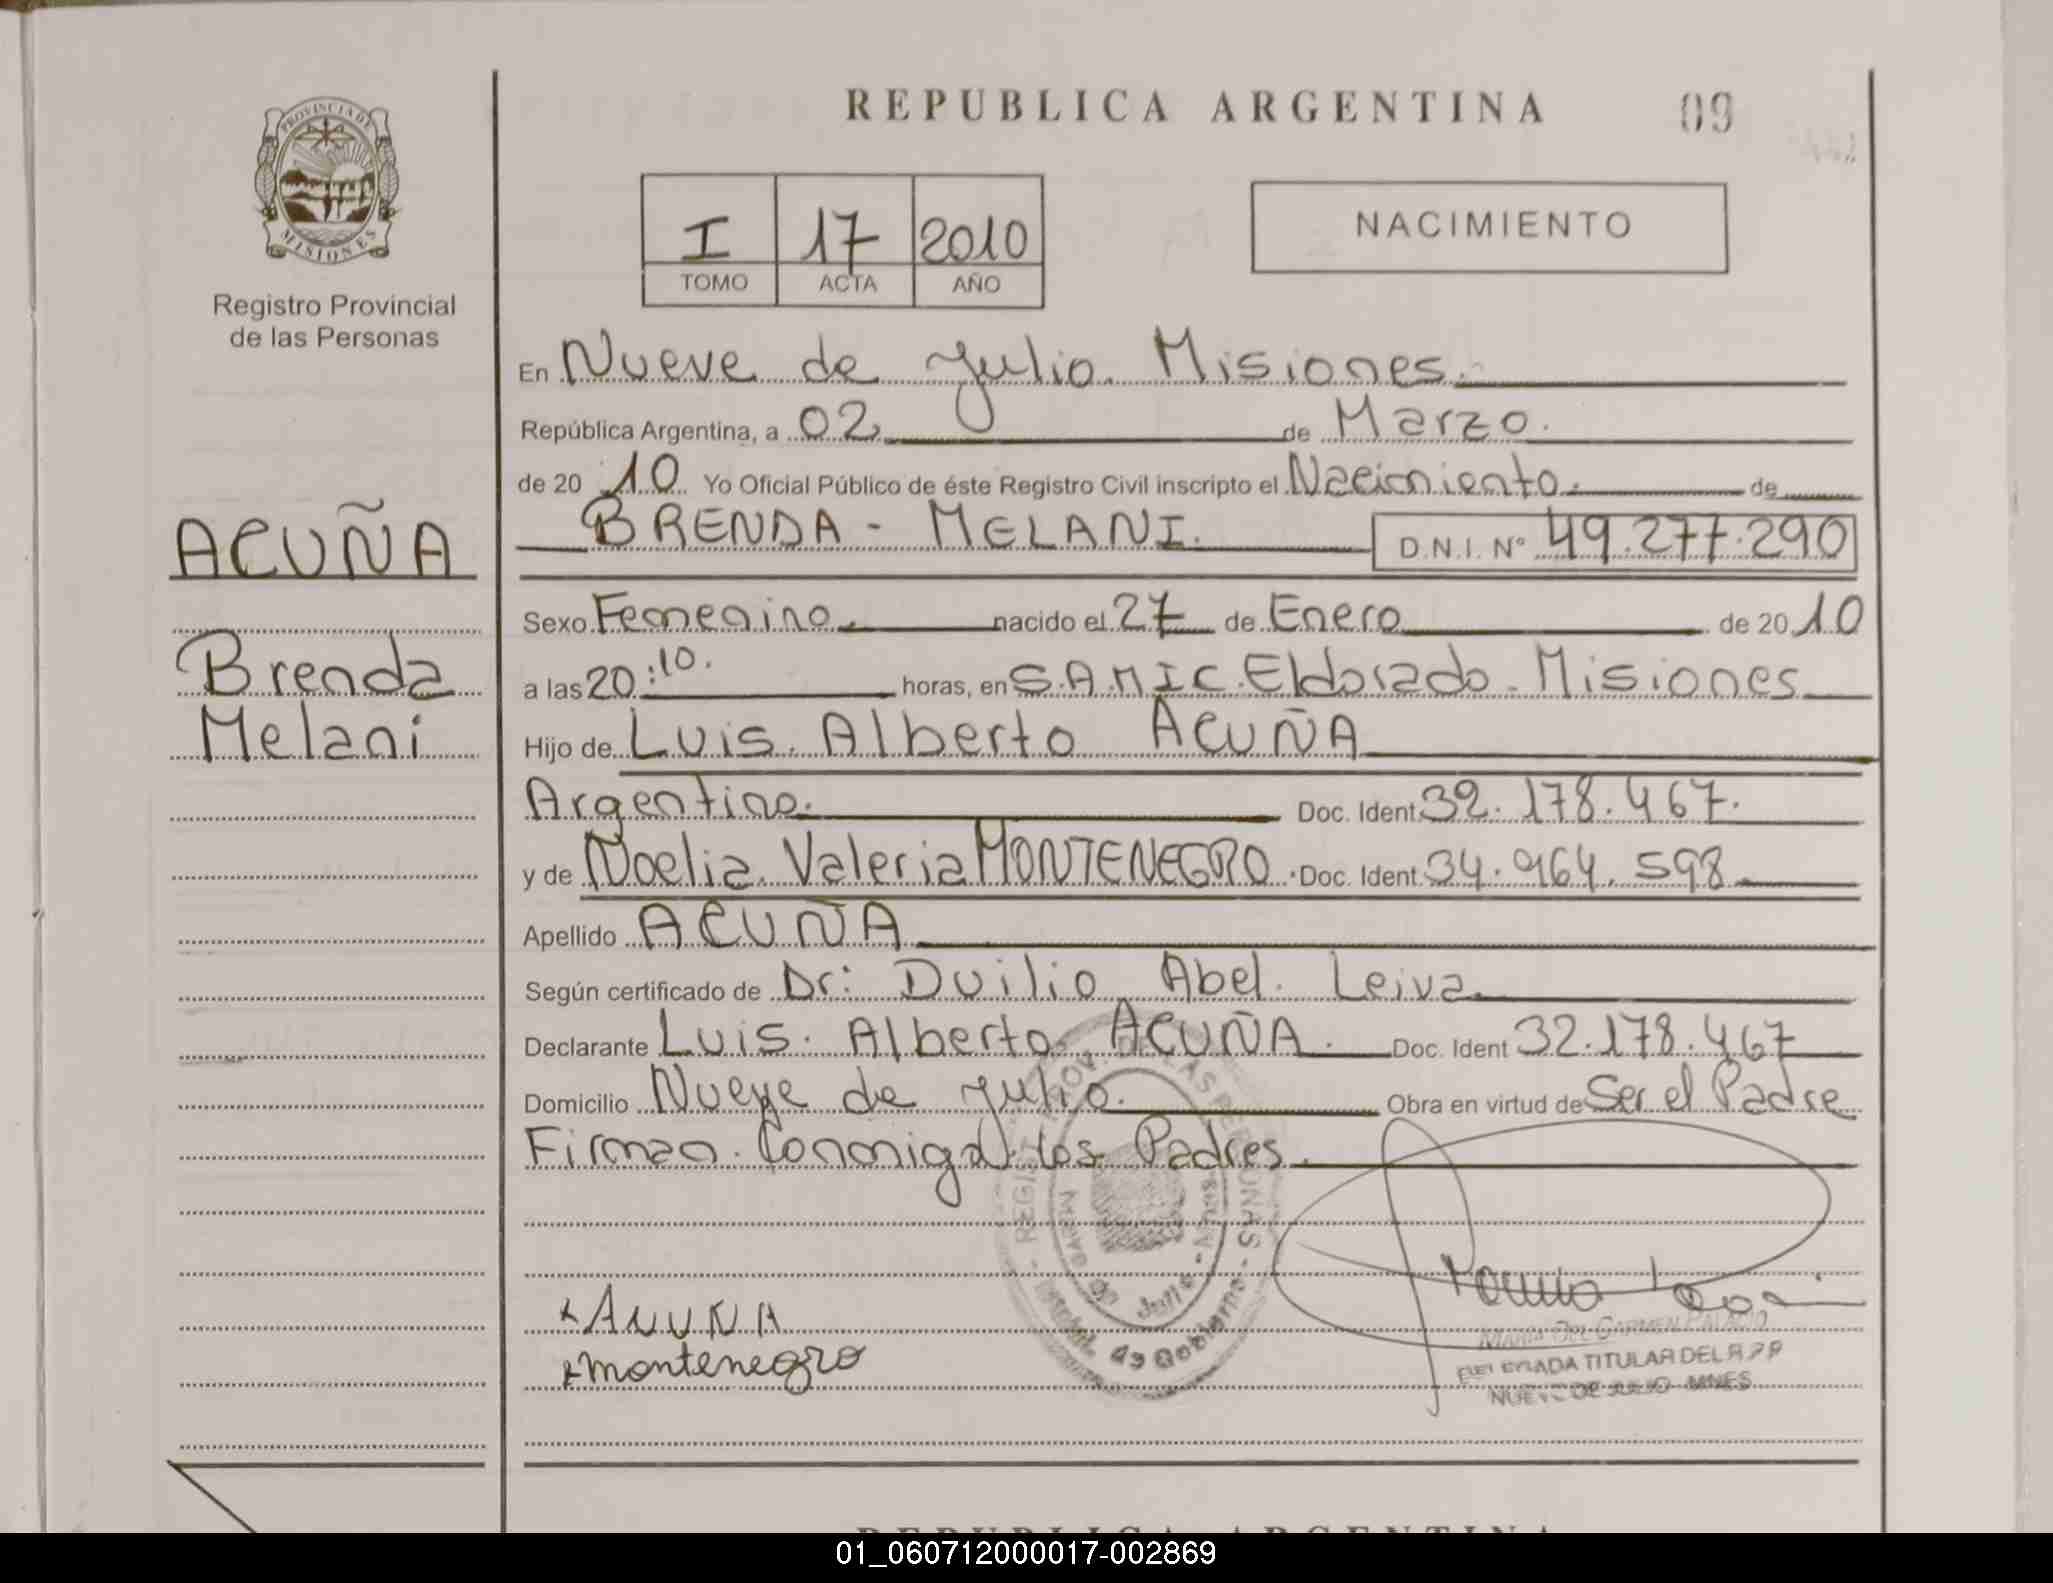 REPUBLICA ARGENTINA
09
PROVINCIA DE MISIONES
Registro Provincial
de las Personas
I 17 2010
TOMO ACTA AÑO
NACIMIENTO
En Nueve de Julio. Misiones.
República Argentina, a 02 de Marzo.
de 20 10 Yo Oficial Público de éste Registro Civil inscripto el Nacimiento. de
BRENDA - MELANI. D.N.I. Nº 49.277.290
ACUÑA
Brenda
Melani
Sexo Femenino. nacido el 27 de Enero de 20 10
a las 20:10. horas, en S.A.M.I.C. Eldorado - Misiones
Hijo de Luis. Alberto ACUÑA
Argentino. Doc. Ident. 32.178.467.
y de Noelia. Valeria MONTENEGRO. Doc. Ident. 34.964.598
Apellido ACUÑA
Según certificado de Dr: Duilio Abel. Leiva
Declarante Luis. Alberto ACUÑA. Doc. Ident 32.178.467
Domicilio Nueve de Julio. Obra en virtud de Ser el Padre
Firman Conmigo los Padres.
REGIST. PROV. DE LAS PERSONAS
de Gobierno
Julio
x ACUÑA
x montenegro
MARIA DEL CARMEN PALACIO
DELEGADA TITULAR DEL R.P.P
NUEVE DE JULIO MNES
REPUBLICA ARGENTINA
01_060712000017-002869